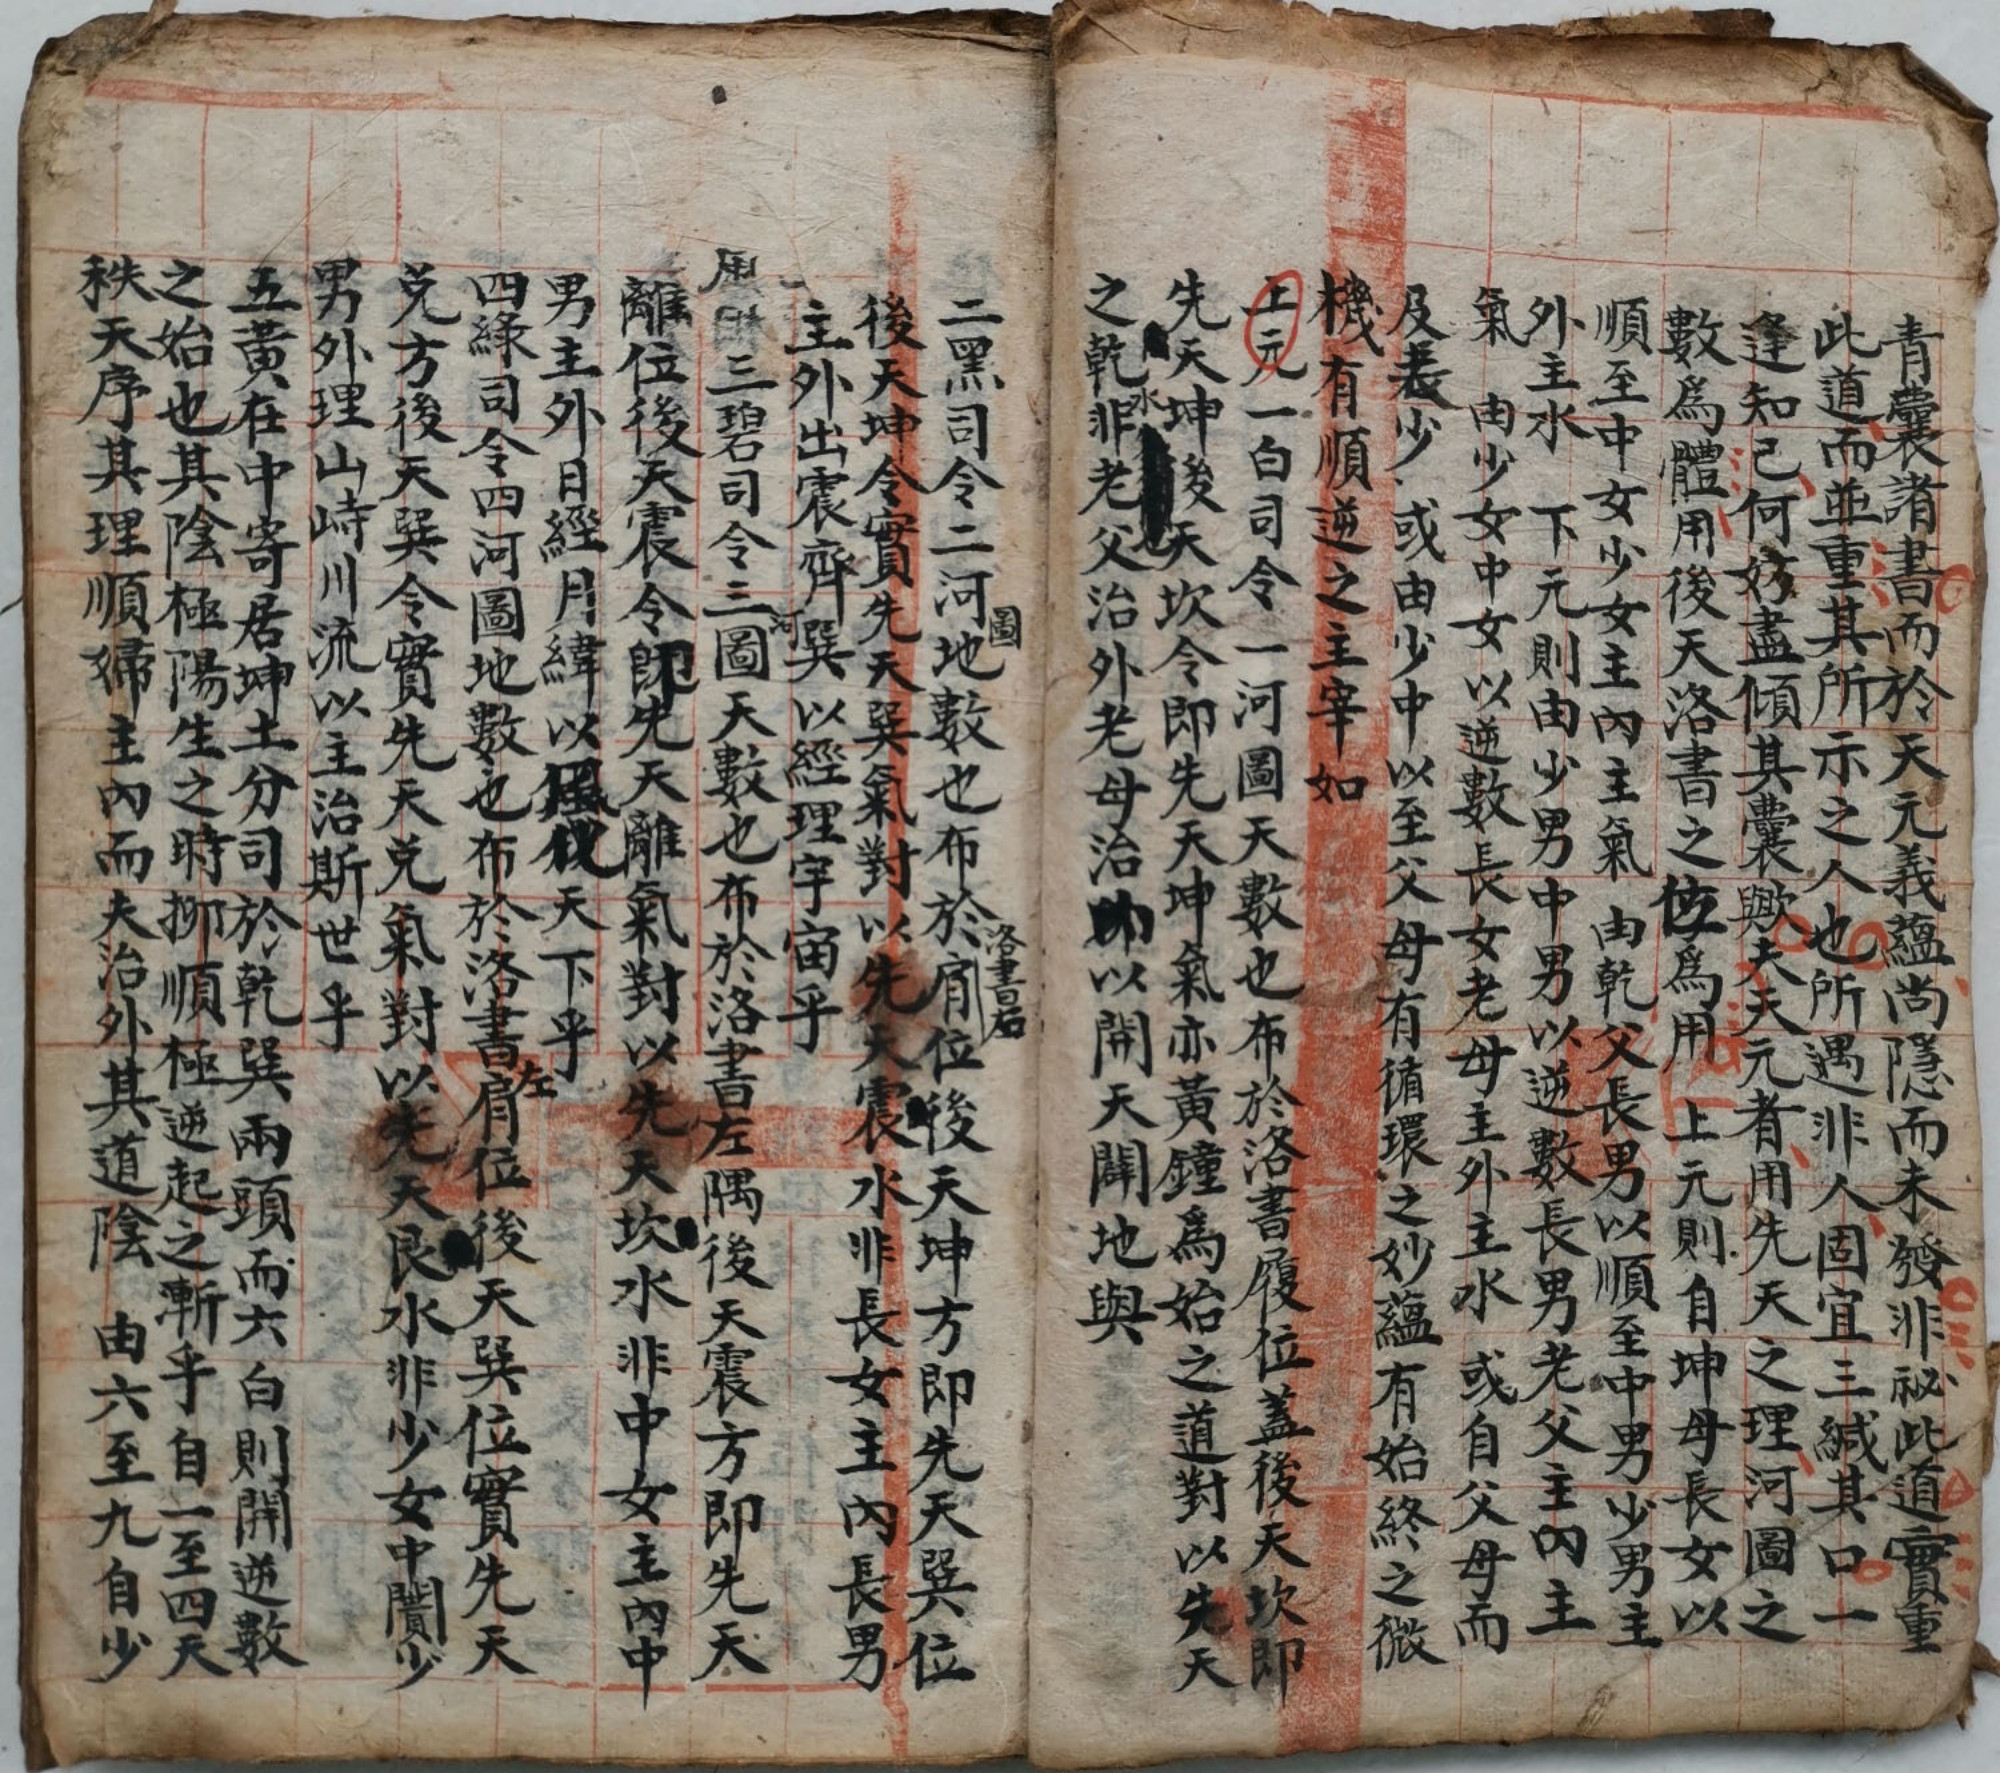 青囊諸書而於天元義蘊尚隱而未發非祕此道實重
此道而並重其所示之人也所遇非人固宜三緘其口一
逢知己何妨盡傾其囊歟夫天元者用先天之理河圖之
數為體用後天洛書之位為用 上元則自坤母長女以
順至中女少女主內主氣 由乾父長男以順至中男少男主
外主水 下元則由少男中男以逆數長男老父主內主
氣 由少女中女以逆數長女老母主外主水 或自父母而
及長少 或由少中以至父母有循環之妙蘊有始終之微
機有順逆之主宰如
上元一白司令一河圖天數也布於洛書履位蓋後天坎即
先天坤後天坎令即先天坤氣亦黃鐘為始之道對以先天
之乾水非老父治外老母治內以開天闢地與
二黑司令二河圖地數也布於洛書右肩位後天坤方即先天巽位
後天坤令實先天巽氣對以先天震水非長女主內長男
主外出震齊巽以經理宇宙乎
三碧司令三河圖天數也布於洛書左隅後天震方即先天
離位後天震令即先天離氣對以先天坎水非中女主內中
男主外日經月緯以天下乎
四綠司令四河圖地數也布於洛書左肩位後天巽位實先天
兌方後天巽令實先天兌氣對以先天艮水非少女中闈少
男外理山峙川流以主治斯世乎
五黃在中寄居坤土分司於乾巽兩頭而六白則開逆數
之始也其陰極陽生之時抑順極逆起之漸乎自一至四天
秩天序其理順婦主內而夫治外其道陰 由六至九自少